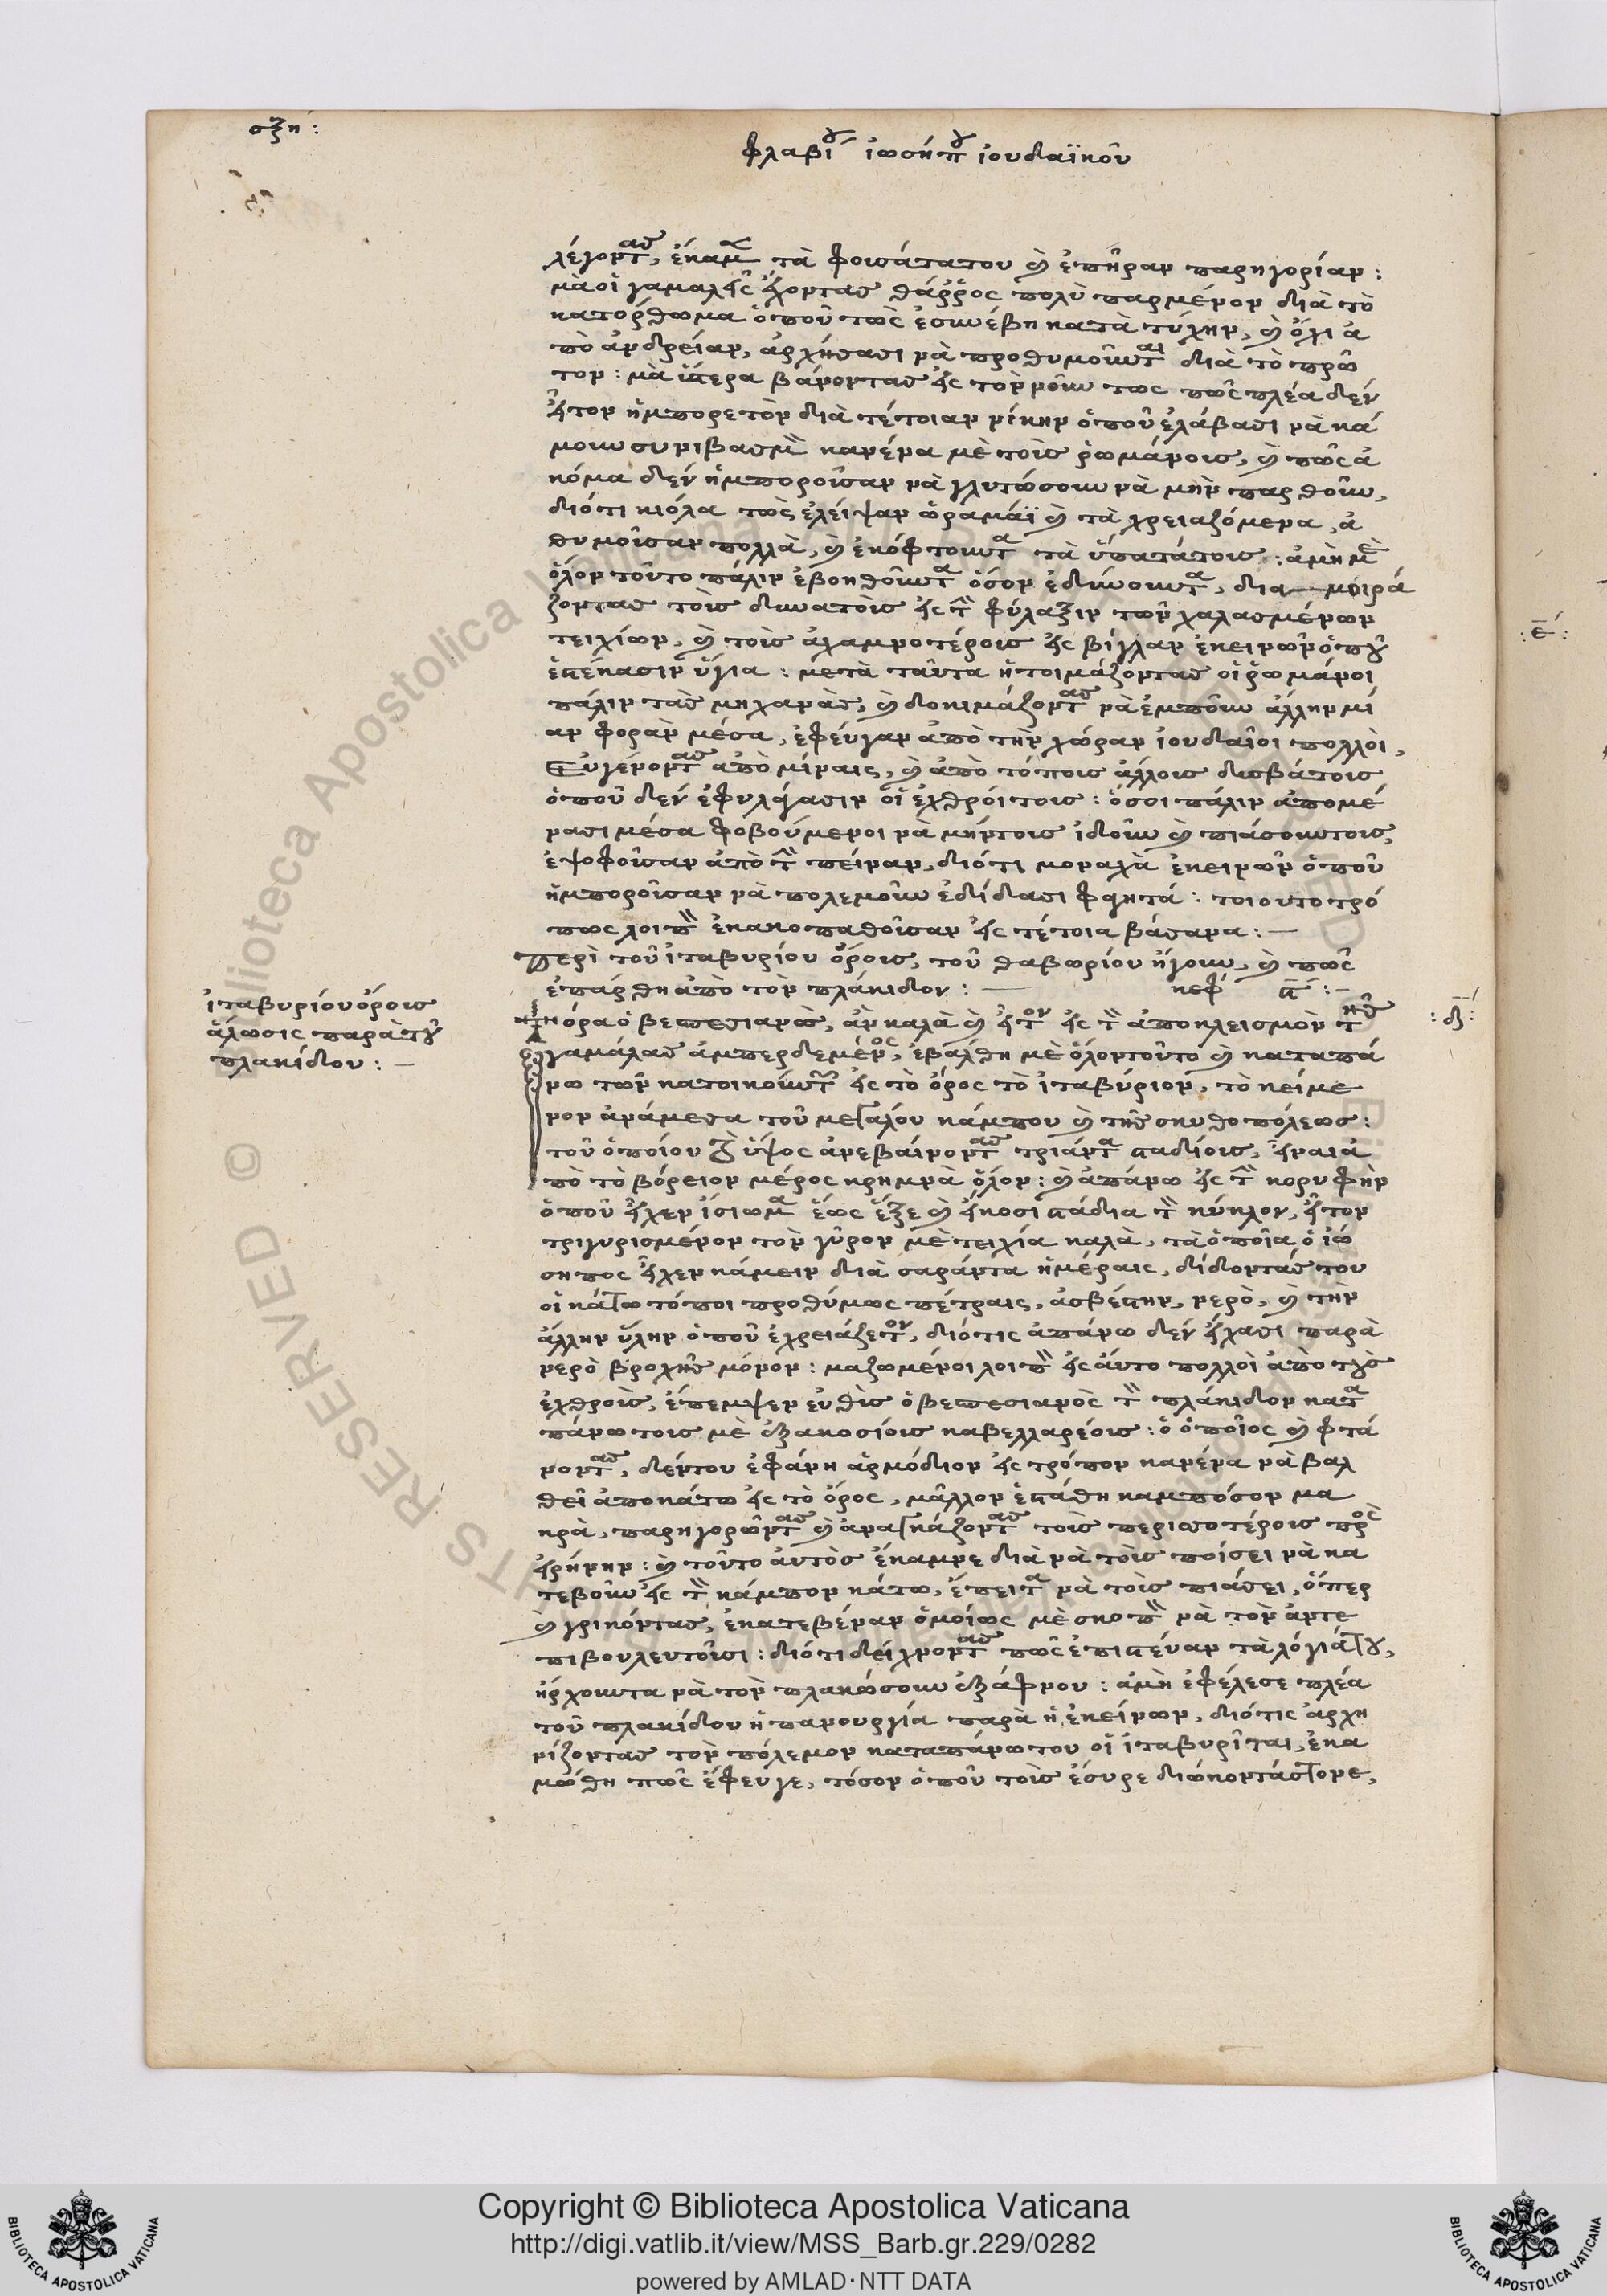 σξη :
φλαβίου ἰωσήπου ἰουδαϊκοῦ
λέγοντας, ἔκαμε τὰ φουσάτατου καὶ ἐπῆραν παρηγορίαν :
μὰ οἱ γαμαλεῖς ἔχοντας θάῤῥος πολὺ παρμένον διὰ τὸ
κατόρθωμα ὁποῦ τῶς ἐσυνέβη κατὰ τύχην, καὶ ὄχι ἀ
πὸ ἀνδρείαν, ἀρχήσασι νὰ προθυμοῦνται διὰ τὸ πρῶ
τον : μὰ ὕστερα βάνοντας εἰς τὸν νοῦν τως πῶς πλέα δὲν
εἶτον ἠμπορετὸν διὰ τέτοιαν νίκην ὁποῦ ἐλάβασι νὰ κά
μουν συνιβασμὸν κανένα μὲ τοὺς ῥωμάνους, καὶ πῶς ἀ
κόμα δὲν ἠμποροῦσαν νὰ γλυτώσουν νὰ μὴν παρθοῦν,
διότι κιόλα τῶς ἐλείψαν ὡραμάϊ καὶ τὰ χρειαζόμενα, ἀ
θυμοῦσαν πολλὰ, καὶ ἐκόφτουντα τὰ ὕπατάτους : ἀμὴ μὲ
ὅλον τοῦτο πάλιν ἐβοηθοῦντα ὅσον ἐδύνουντα, δια μοιρά
ζοντας τοὺς δυνατοὺς εἰς τὴν φύλαξιν τῶν χαλασμένων
τειχίων, καὶ τοὺς ἀχαμνοτέρους εἰς βίγλαν ἐκεινῶν ὁποῦ
ἐστέκασιν ὕγια : μετὰ ταῦτα ἡτοιμάζοντας οἱ ῥωμάνοι
πάλιν τὰς μηχανὰς, καὶ δοκιμάζοντας νὰ ἐμποῦν ἄλλην μί
αν φορὰν μέσα, ἐφεύγαν ἀπὸ τὴν χώραν ἰουδαῖοι πολλοὶ,
εὐγένοντας ἀπὸ μίναις, καὶ ἀπὸ τόπους ἄλλους δυσβάτους
ὁποῦ δὲν ἐφυλάγασιν οἱ ἐχθρόι τους : ὅσοι πάλιν ἀπομέ
νασι μέσα φοβούμενοι νὰ μήν τους ἰδοῦν καὶ πιάσουντους,
ἐψοφοῦσαν ἀπὸ τὴν πείναν, διότι μοναχὰ ἐκεινῶν ὁποῦ
ἠμποροῦσαν νὰ πολεμοῦν ἐδίδασι φαητά : τοιουτοτρό
πως λοιπὸν ἐκακοπαθοῦσαν εἰς τέτοια βάσανα : —
περὶ τοῦ ἰταβυρίου ὄρους, τοῦ θαβωρίου ἤγουν, καὶ πῶς
ἐπάρθη ἀπὸ τὸν πλάκιδον : — κεφ α : —
ἰταβυρίου ὄρους
ἅλωσις παρὰ τοῦ
πλακίδου : —
: ε :
: δ :
όρα ὁ βεσπεσιανὸς, ἂν καλὰ καὶ εἶτον εἰς τὸν ἀποκλεισμὸν τῆς
γαμάλας ἀμπερδεμένος, ἐβάλθη μὲ ὅλοντοῦτο καὶ καταπά
νω τῶν κατοικούντων εἰς τὸ ὄρος τὸ ἰταβύριον, τὸ κείμε
νον ἀνάμεσα τοῦ μεγάλου κάμπου καὶ τῆς σκυθοπόλεως :
τοῦ ὁποίου τὸ ὕψος ἀνεβαίνοντας τριάντα σταδίους, εἶναι ἀ
πὸ τὸ βόρειον μέρος κρημνὰ ὅλον : καὶ ἀπάνω εἰς τὴν κορυφὴν
ὁποῦ εἶχεν ἰσιωμα ἕως ἕξε καὶ εἴκοσι στάδια τὸν κύκλον, εἶτον
τριγυρισμένον τὸν γῦρον μὲ τειχία καλὰ, τὰ ὁποῖα ὁ ἰώ
σηπος εἶχεν κάμειν διὰ σαράντα ἡμέραις, δίδοντάς του
οἱ κάτω τόποι προθύμως πέτραις, ἀσβέστην, νερὸ, καὶ τὴν
ἄλλην ὕλην ὁποῦ ἐχρειάζετον, διότις ἀπάνω δὲν εἴχασι παρὰ
νερὸ βροχῆς μόνον : μαζωμένοι λοιπὸν εἰς ἀυτο πολλοὶ ἀπὸ τοὺς
ἐχθροὺς, ἔπεμψεν εὐθὺς ὁ βεσπεσιανὸς τὸν πλάκιδον κατα
πάνω τους μὲ ἑξακοσίους καβελλαρέους : ὁ ὁποῖος καὶ φτά
νοντας, δέντου ἐφάνη ἁρμόδιον εἰς τρόπον κανένα νὰ βαλ
θεῖ ἀποκάτω εἰς τὸ ὄρος, μᾶλλον ἐστάθη καμπόσον μα
κρὰ, παρηγορῶντας καὶ ἀναγκάζοντας τοὺς περισσοτέρους πρὸς
εἰρήνην : καὶ τοῦτο ἀυτὸς ἔκαμνε διὰ νὰ τοὺς ποίσει νὰ κα
τεβοῦν εἰς τὸν κάμπον κάτω, ἔπειτα νὰ τοὺς πιάσει, ὅπερ
καὶ γρικόντας, ἐκατεβέναν ὁμοίως μὲ σκοπὸν νὰ τὸν ἀντε
πιβουλευτοῦσι : διότι δείχνοντας πῶς ἐπιστέναν τὰ λόγιά του,
ἠρχουντα νὰ τὸν πλακώσουν ἐξάφνου : ἀμὴ ἐφέλεσε πλέα
τοῦ πλακίδου ἡ πανουργία παρὰ ἡ ἐκείνων, διότις ἀρχη
νίζοντας τὸν πόλεμον καταπάνω του οἱ ἰταβυρῖται, ἐκα
μώθη πῶς ἔφευγε, τόσον ὁποῦ τοὺς ἔσυρε διώκοντάς τονε,